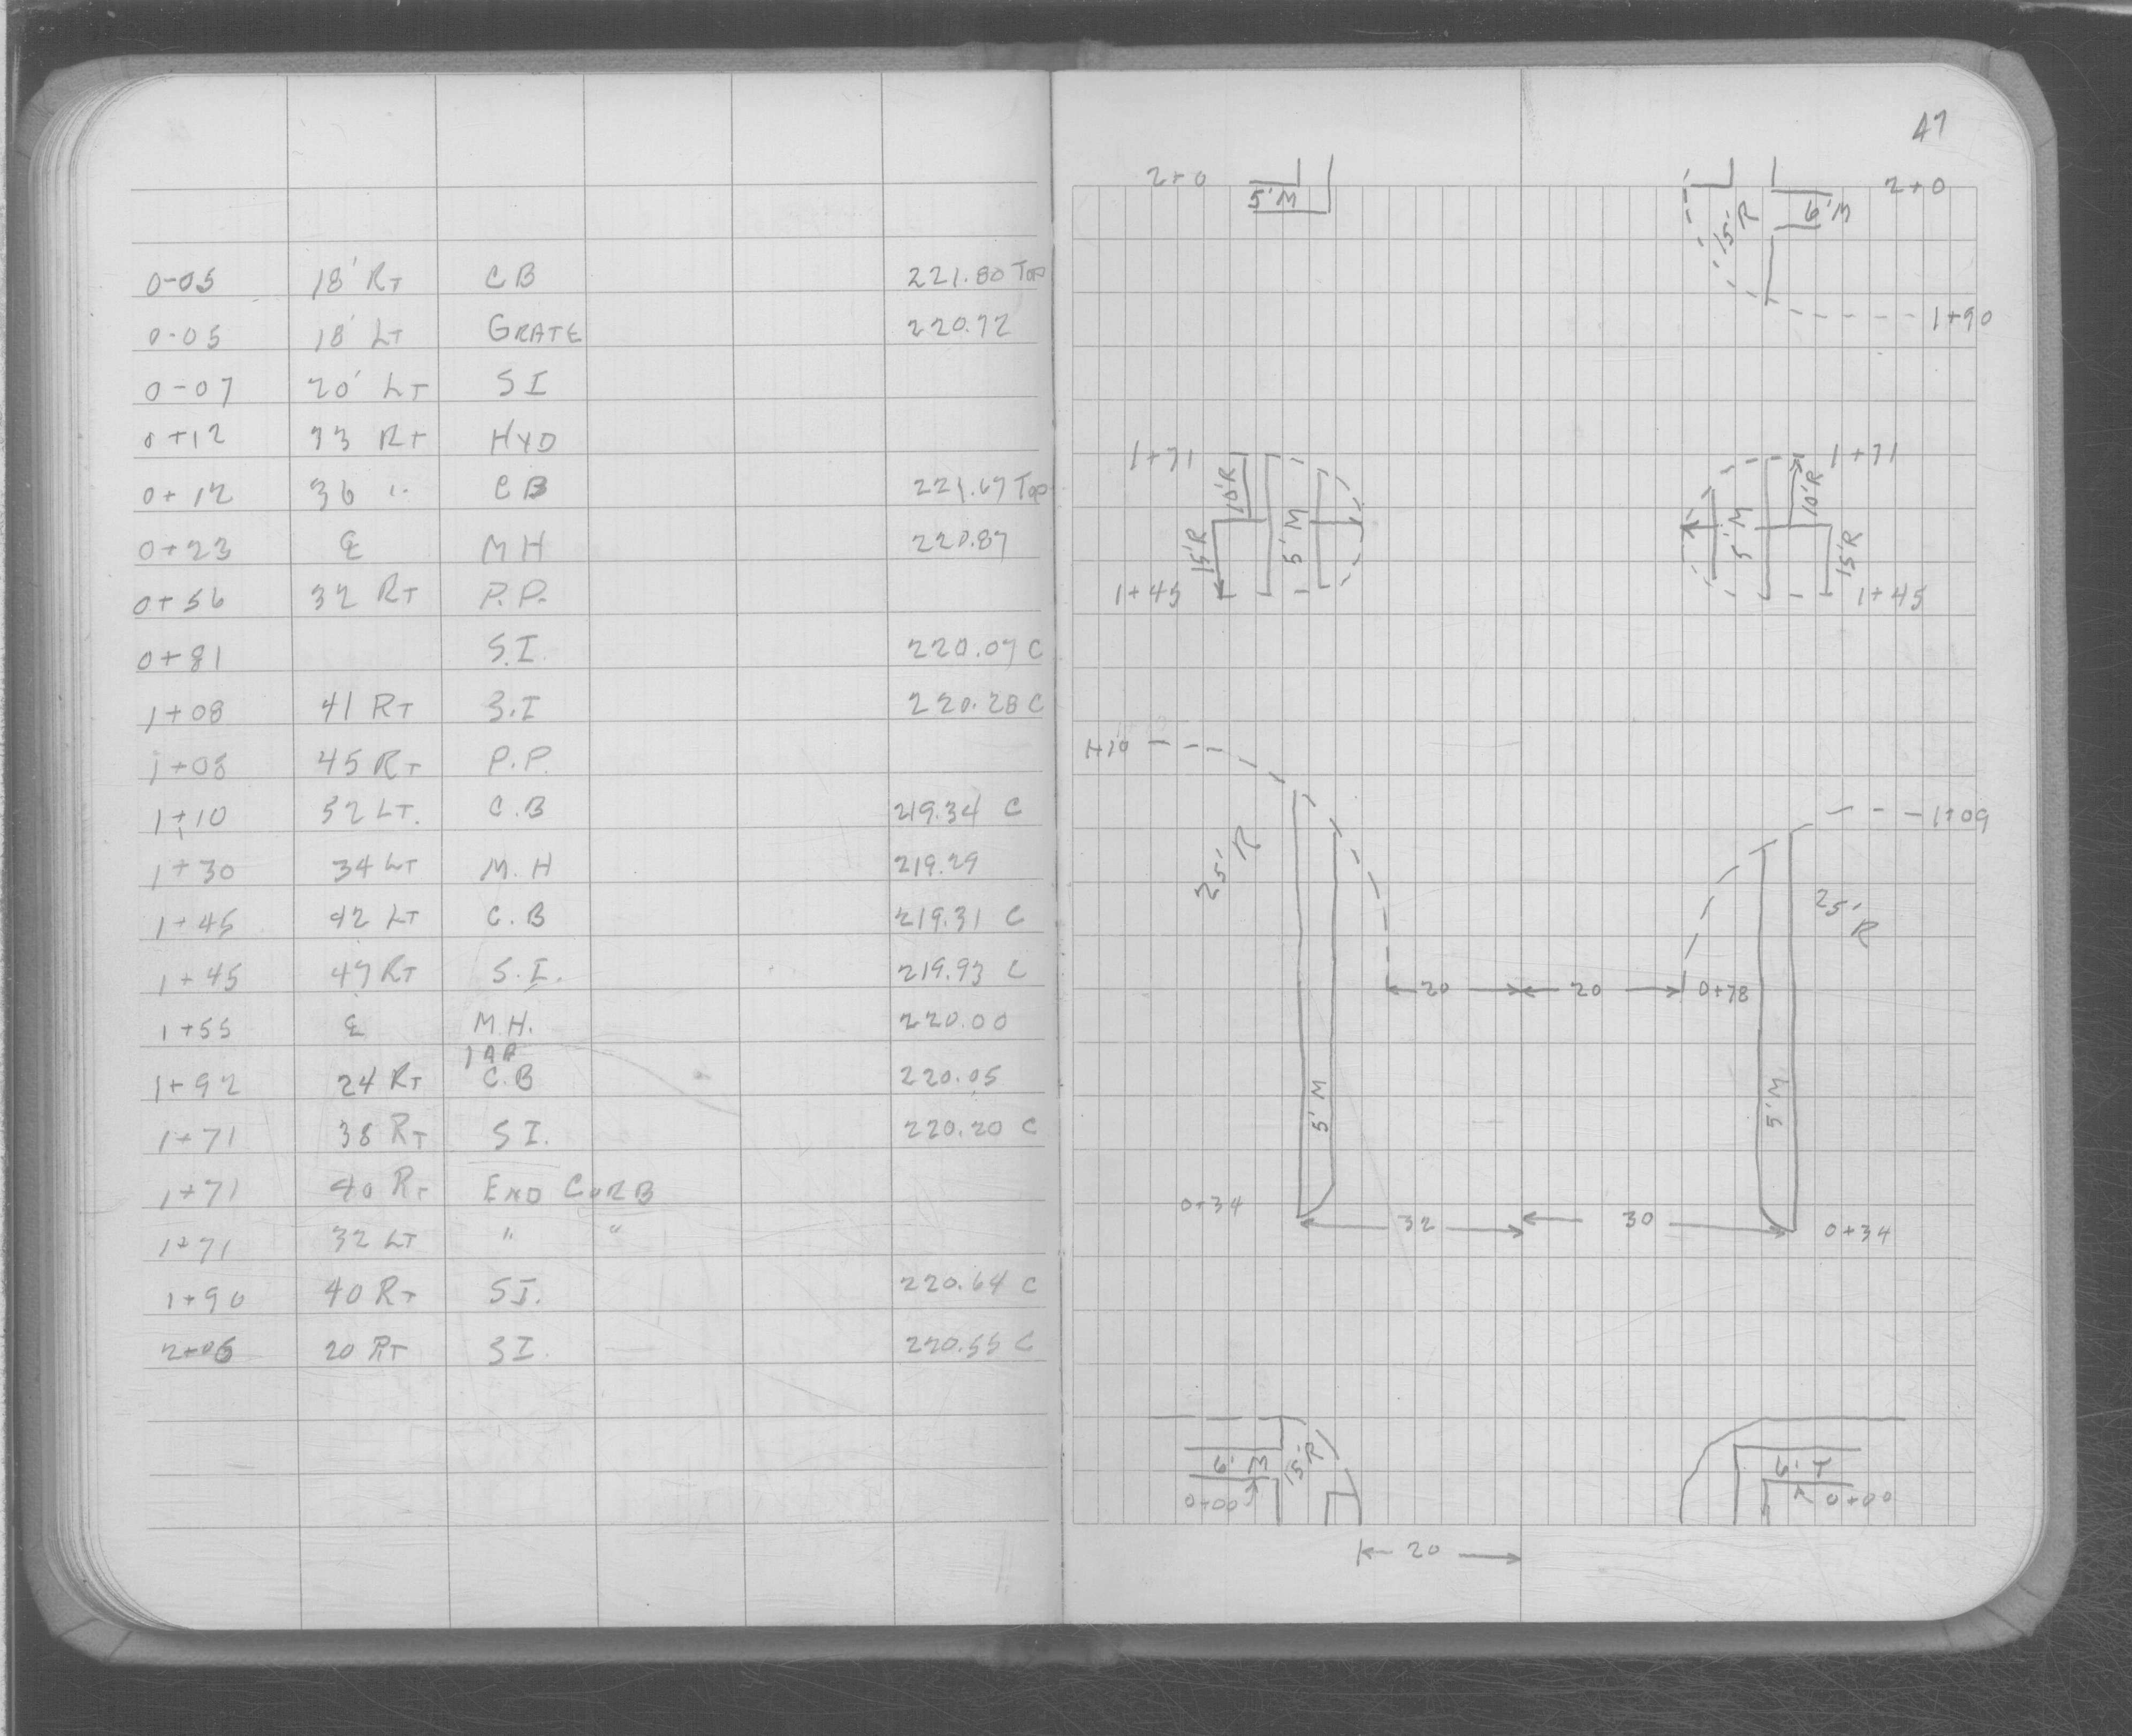 0-05 18' RT CB 221.80 TOP
0-05 18' LT GRATE 220.72
0-07 20' LT SI
0+12 33 RT HYD
0+12 36 " CB 221.67 TOP
0+23 ℄ MH 220.87
0+56 32 RT P.P.
0+81 S.I. 220.07 C
1+08 41 RT S.I 220.28 C
1+08 45 RT P.P.
1+10 32 LT. C.B 219.34 C
1+30 34 LT M.H 219.29
1+45 42 LT C.B 219.31 C
1+45 47 RT S.I. 219.93 C
1+55 ℄ M.H. 220.00
1+92 24 RT C.B 220.05
1+71 38 RT SI. 220.20 C
1+71 40 RT END CURB
1+71 32 LT " "
1+90 40 RT SI. 220.64 C
2+05 20 RT SI. 220.55 C
47
2+0 5'M 15'R 6'M 2+0
1+90
1+71 10'R 1+71 10'R
15'R 5'M 5'M 15'R
1+45 1+45
1+10
1+09
25' R 25' R
20 20 0+78
5'M 5'M
0+34 32 30 0+34
6' M 15'R 6' T
0+00 0+00
20